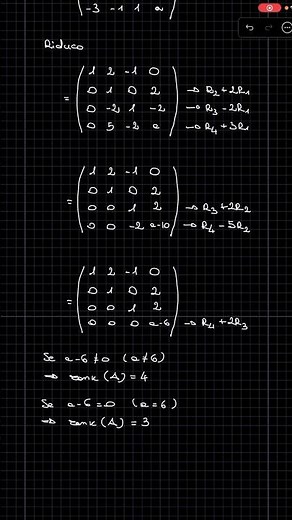 -3 -1 1 a
Riduco
1 2 -1 0
= 0 1 0 2 → R₂+2R₁
0 -2 1 -2 → R₃-2R₁
0 5 -2 a → R₄+3R₁
1 2 -1 0
= 0 1 0 2
0 0 1 2 → R₃+2R₂
0 0 -2 a-10 → R₄-5R₂
1 2 -1 0
= 0 1 0 2
0 0 1 2
0 0 0 a-6 → R₄+2R₃
Se a-6≠0 (a≠6)
→ rank(A)=4
Se a-6=0 (a=6)
→ rank(A)=3